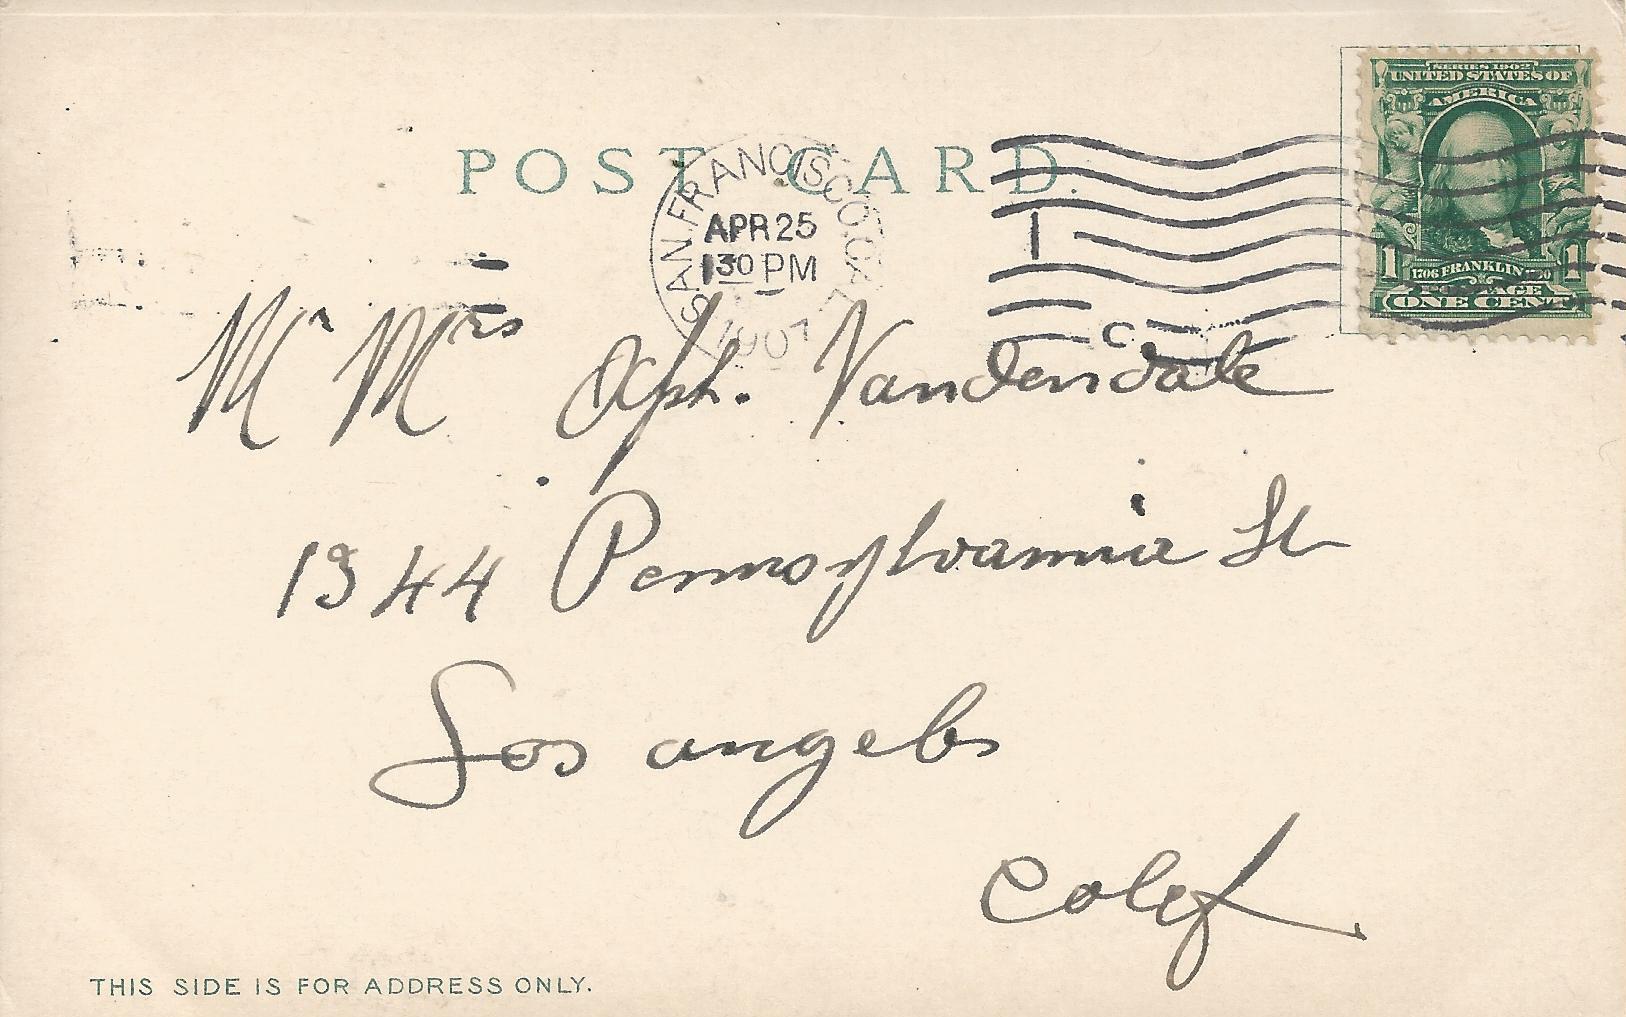 SERIES 1902
UNITED STATES OF
AMERICA
1706 FRANKLIN 1790
1 1
POSTAGE
ONE CENT
POST CARD.
SAN FRANCISCO, CAL.
APR 25
1 30 PM
1907
1
C
Mr Mrs Alph. Vandendale
1344 Pennsylvania St
Los angeles
Calif
THIS SIDE IS FOR ADDRESS ONLY.